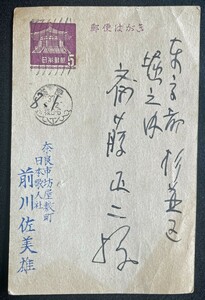 郵便はがき
日本郵便
5
東京都杉並区
堀之内
斎藤正二様
奈良市坊屋敷町
日本歌人社
前川佐美雄